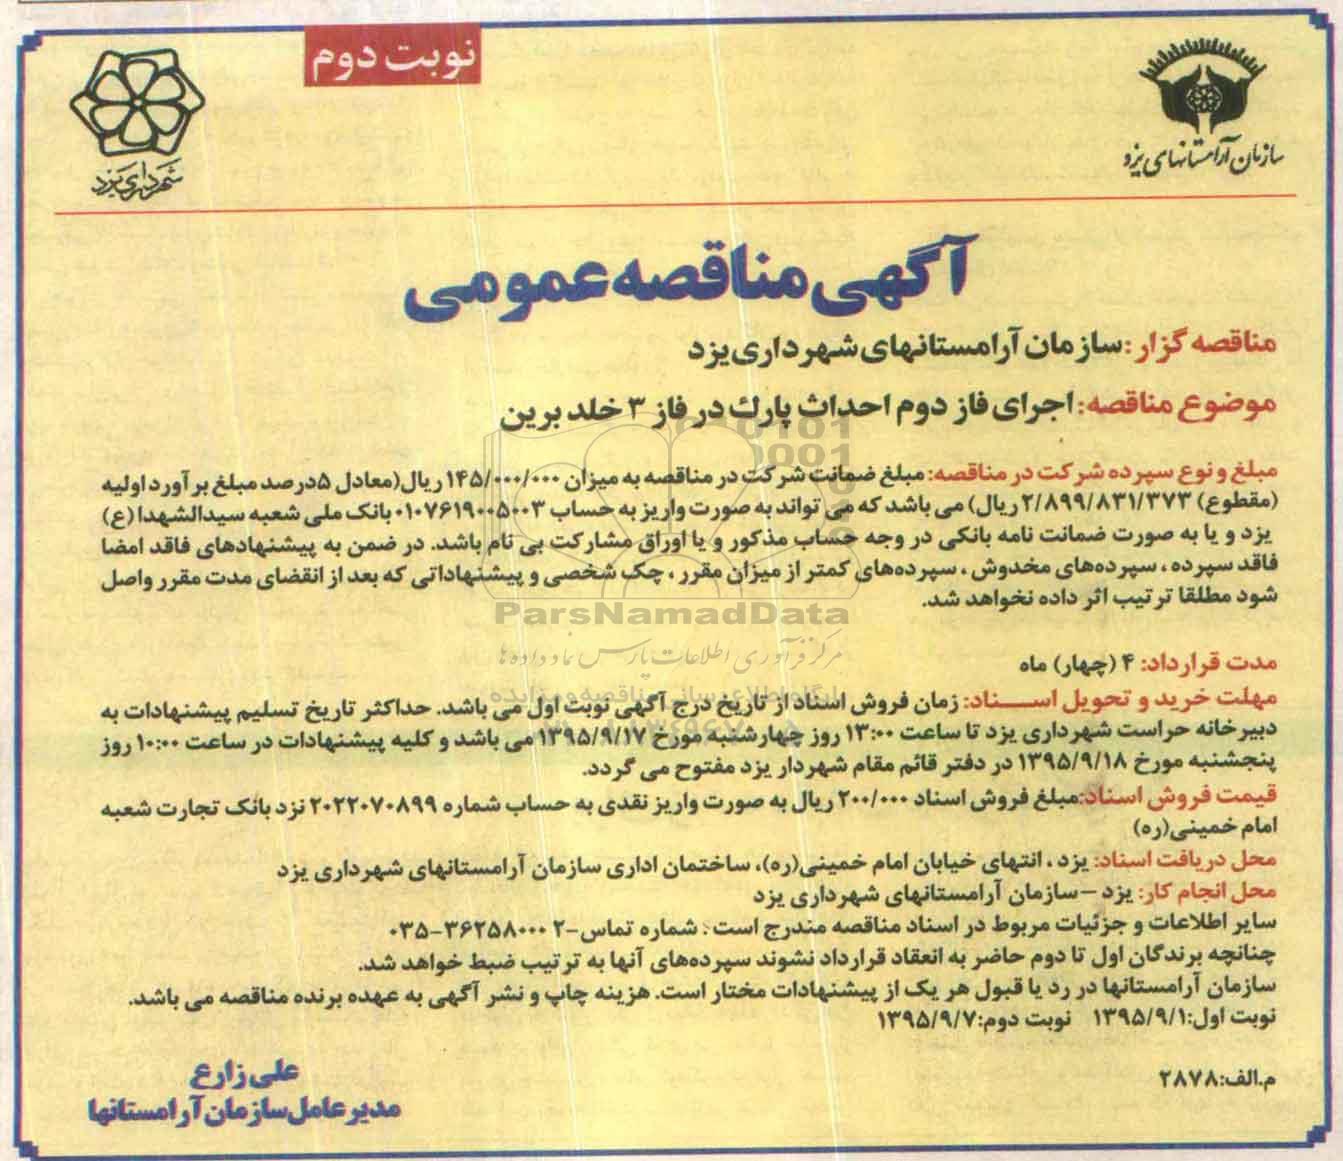 نوبت دوم
سازمان آرامستانهای یزد
شهرداری یزد
آگهی مناقصه عمومی
مناقصه گزار: سازمان آرامستانهای شهرداری یزد
موضوع مناقصه: اجرای فاز دوم احداث پارک در فاز ۳ خلد برین
مبلغ و نوع سپرده شرکت در مناقصه: مبلغ ضمانت شرکت در مناقصه به میزان ۱۴۵/۰۰۰/۰۰۰ ریال(معادل ۵درصد مبلغ برآورد اولیه
(مقطوع) ۲/۸۹۹/۸۳۱/۳۷۳ ریال) می باشد که می تواند به صورت واریز به حساب ۰۱۰۷۶۱۹۰۰۵۰۰۳ بانک ملی شعبه سیدالشهدا (ع)
یزد و یا به صورت ضمانت نامه بانکی در وجه حساب مذکور و یا اوراق مشارکت بی نام باشد. در ضمن به پیشنهادهای فاقد امضا
فاقد سپرده ، سپرده‌های مخدوش ، سپرده‌های کمتر از میزان مقرر ، چک شخصی و پیشنهاداتی که بعد از انقضای مدت مقرر واصل
شود مطلقا ترتیب اثر داده نخواهد شد.
ParsNamadData
مرکز فرآوری اطلاعات پارس نماد داده ها
مدت قرارداد: ۴ (چهار) ماه
پایگاه اطلاع رسانی مناقصه و مزایده
مهلت خرید و تحویل اسناد: زمان فروش اسناد از تاریخ درج آگهی نوبت اول می باشد. حداکثر تاریخ تسلیم پیشنهادات به
دبیرخانه حراست شهرداری یزد تا ساعت ۱۳:۰۰ روز چهارشنبه مورخ ۱۳۹۵/۹/۱۷ می باشد و کلیه پیشنهادات در ساعت ۱۰:۰۰ روز
پنجشنبه مورخ ۱۳۹۵/۹/۱۸ در دفتر قائم مقام شهردار یزد مفتوح می گردد.
قیمت فروش اسناد:مبلغ فروش اسناد ۲۰۰/۰۰۰ ریال به صورت واریز نقدی به حساب شماره ۲۰۲۲۰۷۰۸۹۹ نزد بانک تجارت شعبه
امام خمینی(ره)
محل دریافت اسناد: یزد ، انتهای خیابان امام خمینی(ره)، ساختمان اداری سازمان آرامستانهای شهرداری یزد
محل انجام کار: یزد –سازمان آرامستانهای شهرداری یزد
سایر اطلاعات و جزئیات مربوط در اسناد مناقصه مندرج است . شماره تماس-۲ ۰۳۵-۳۶۲۵۸۰۰۰
چنانچه برندگان اول تا دوم حاضر به انعقاد قرارداد نشوند سپرده‌های آنها به ترتیب ضبط خواهد شد.
سازمان آرامستانها در رد یا قبول هر یک از پیشنهادات مختار است. هزینه چاپ و نشر آگهی به عهده برنده مناقصه می باشد.
نوبت اول:۱۳۹۵/۹/۱ نوبت دوم:۱۳۹۵/۹/۷
م.الف:۲۸۷۸
علی زارع
مدیر عامل سازمان آرامستانها